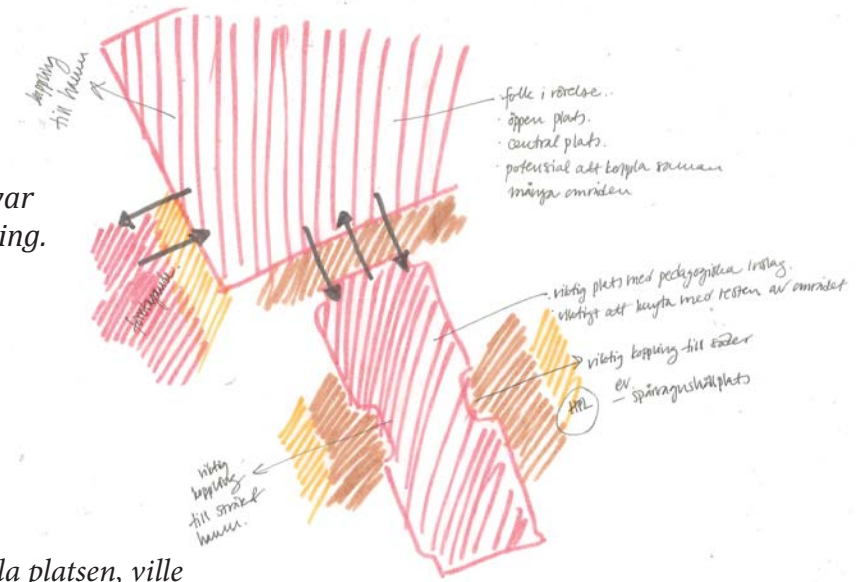 koppling
till hamn
folk i rörelse..
· öppen plats.
· central plats.
· potensial att koppla samman
många områden
var
ing.
företagande.
· viktig plats med pedagogiska inslag.
· viktigt att knyta med resten av området
viktig koppling till söder
ev
HPL
— spårvagnshållplats
viktig
koppling
till stråket
hamn.
la platsen, ville